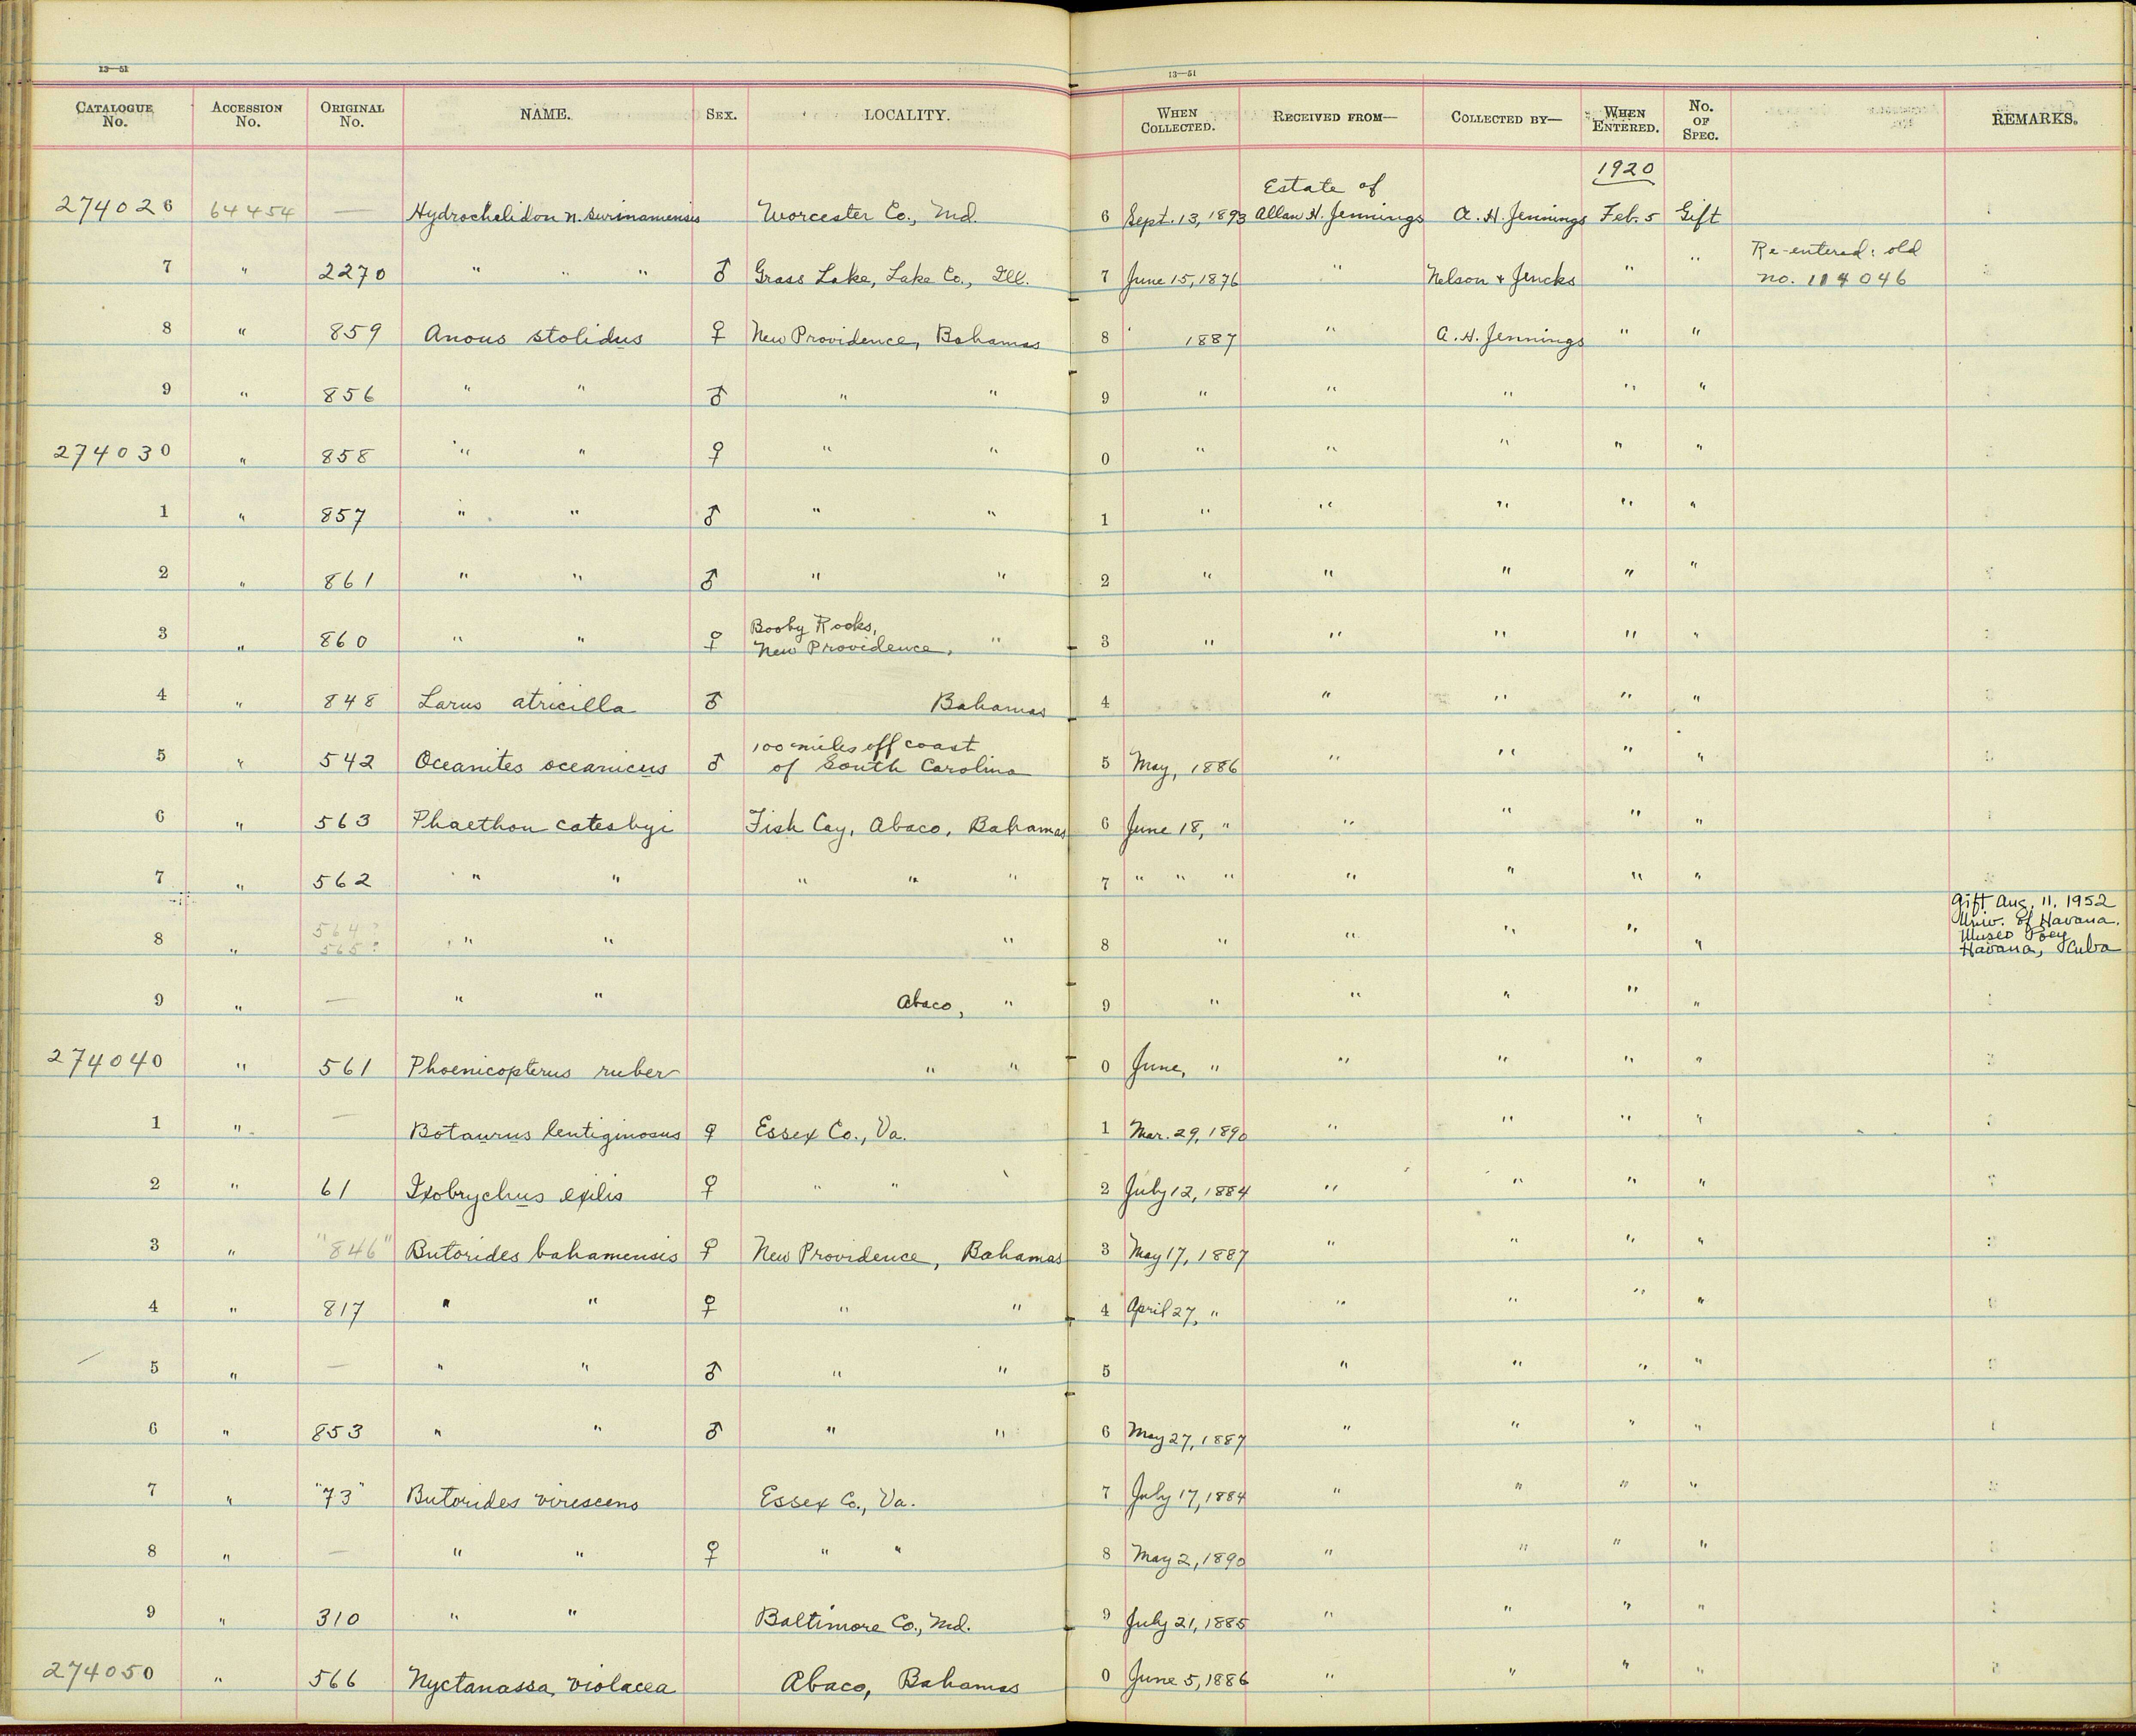 13—51
13—51
CATALOGUE No. ACCESSION No. ORIGINAL No. NAME. SEX. LOCALITY. WHEN COLLECTED. RECEIVED FROM— COLLECTED BY— WHEN ENTERED. No. OF SPEC. REMARKS.
1920
Estate of
274026 64454 — Hydrochelidon n. surinamensis Worcester Co., Md. 6 Sept. 13, 1893 Allan H. Jennings A. H. Jennings Feb. 5 Gift
Re-entered: old
7 " 2270 " " " ♂ Grass Lake, Lake Co., Ill. 7 June 15, 1876 " Nelson & Jencks " " no. 114046
8 " 859 Anous stolidus ♀ New Providence, Bahamas 8 1887 " A. H. Jennings " "
9 " 856 " " ♂ " " 9 " " " " "
274030 " 858 " " ♀ " " 0 " " " " "
1 " 857 " " ♂ " " 1 " " " " "
2 " 861 " " ♂ " " 2 " " " " "
Booby Rocks,
3 " 860 " " ♀ New Providence, " 3 " " " " "
4 " 848 Larus atricilla ♂ Bahamas 4 " " " "
100 miles off coast
5 " 542 Oceanites oceanicus ♂ of South Carolina 5 May, 1886 " " " "
6 " 563 Phaethon catesbyi Fish Cay, Abaco, Bahamas 6 June 18, " " " " "
7 " 562 " " " " " 7 " " " " " " "
Gift Aug. 11, 1952
564? Univ. of Havana.
8 " 565? " " " 8 " " " " " Museo Poey
Havana, Cuba
9 " — " " Abaco, " 9 " " " " "
274040 " 561 Phoenicopterus ruber " " 0 June, " " " " "
1 " — Botaurus lentiginosus ♀ Essex Co., Va. 1 Mar. 29, 1890 " " " "
2 " 61 Ixobrychus exilis ♀ " " 2 July 12, 1884 " " " "
3 " "846" Butorides bahamensis ♀ New Providence, Bahamas 3 May 17, 1887 " " " "
4 " 817 " " ♀ " " 4 April 27, " " " " "
5 " — " " ♂ " " 5 " " " "
6 " 853 " " ♂ " " 6 May 27, 1887 " " " "
7 " "73" Butorides virescens Essex Co., Va. 7 July 17, 1884 " " " "
8 " — " " ♀ " " 8 May 2, 1890 " " " "
9 " 310 " " Baltimore Co., Md. 9 July 21, 1885 " " " "
274050 " 566 Nyctanassa violacea Abaco, Bahamas 0 June 5, 1886 " " " "